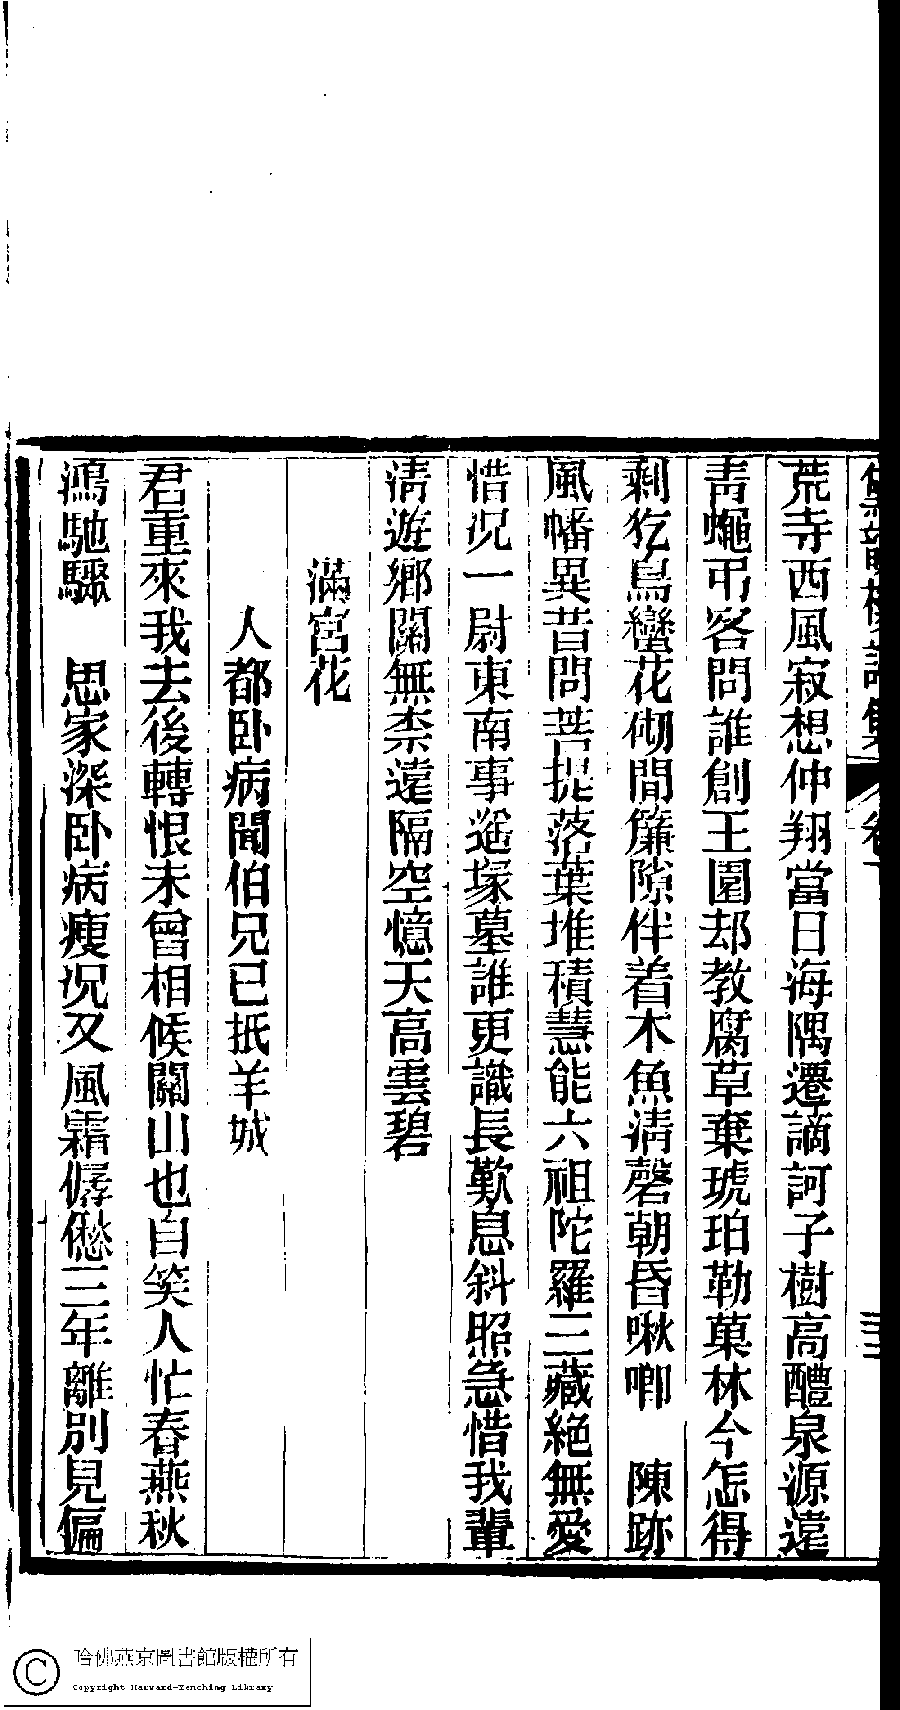 黛韻樓詞集 卷下
荒寺西風寂想仲翔當日海隅遷謫訶子樹高醴泉源遠
青蠅弔客問誰創王園却教腐草棄琥珀勒菓林今怎得
剩犵鳥蠻花砌間簾隙伴着木魚清磬朝昏啾唧　陳跡
風幡異昔問菩提落葉堆積慧能六祖陀羅三藏絕無愛
惜況一尉東南事塚墓誰更識長歎息斜照急惜我輩
清遊鄉關無柰遠隔空憶天高雲碧
滿宮花
人都卧病聞伯兄已抵羊城
君重來我去後轉恨未曾相候關山也自笑人忙春燕秋
鴻馳驟　思家深卧病瘦況又風霜僝僽三年離別見偏
哈佛燕京圖書館版權所有
Copyright Harvard-Yenching Library